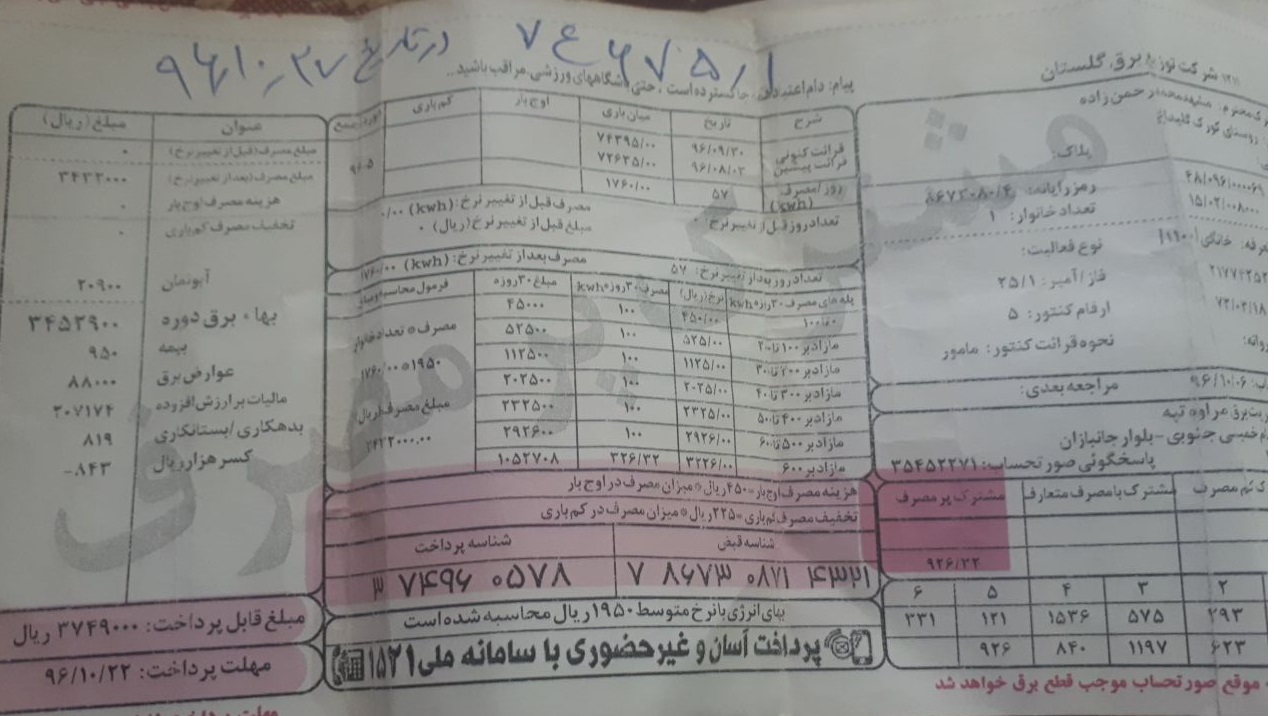 در تاریخ ۹۶/۱۰/۲۷
شرکت توزیع برق گلستان
پیام: دام اعتیاد گسترده است، حتی باشگاههای ورزشی.مراقب باشید...
رحمن زاده
پلاک:
رمز رایانه: ۸۶۷۳۰۸۰/۴
تعداد خانوار: ۱
نوع فعالیت:
فاز/آمپر: ۲۵/۱
ارقام کنتور: ۵
نحوه قرائت کنتور: مامور
مراجعه بعدی:
۹۶/۱۰/۰۶
برق مراوه تپه
خمینی جنوبی-بلوار جانبازان
پاسخگوئی صورتحساب: ۳۵۴۵۲۲۷۱
شرح تاریخ میان باری اوج بار کم باری
قرائت کنونی ۹۶/۰۹/۳۰ ۷۴۳۹۵/۰۰
قرائت پیشین ۹۶/۰۸/۰۳ ۷۲۶۳۵/۰۰
روز/مصرف (kwh) ۵۷ ۱۷۶۰/۰۰
تعداد روز قبل از تغییر نرخ: ۰
مصرف قبل از تغییر نرخ: (kwh) ۰/۰۰
مبلغ قبل از تغییر نرخ: (ریال) ۰
تعداد روز بعد از تغییر نرخ: ۵۷ مصرف بعد از تغییر نرخ: (kwh) ۱۷۶۰/۰۰
پله های مصرف ۳۰ روزه kwh نرخ(ریال) مصرف ۳۰ روزه kwh مبلغ ۳۰ روزه
۰ تا ۱۰۰ ۴۵۰/۰۰ ۱۰۰ ۴۵۰۰۰
مازاد بر ۱۰۰ تا ۲۰۰ ۵۲۵/۰۰ ۱۰۰ ۵۲۵۰۰
مازاد بر ۲۰۰ تا ۳۰۰ ۱۱۲۵/۰۰ ۱۰۰ ۱۱۲۵۰۰
مازاد بر ۳۰۰ تا ۴۰۰ ۲۰۲۵/۰۰ ۱۰۰ ۲۰۲۵۰۰
مازاد بر ۴۰۰ تا ۵۰۰ ۲۳۲۵/۰۰ ۱۰۰ ۲۳۲۵۰۰
مازاد بر ۵۰۰ تا ۶۰۰ ۲۹۲۶/۰۰ ۱۰۰ ۲۹۲۶۰۰
مازاد بر ۶۰۰ ۳۲۲۶/۰۰ ۳۲۶/۳۲ ۱۰۵۲۷۰۸
مصرف * تعداد خانوار
۱۷۶۰/۰۰*۱۹۵۰
هزینه مصرف اوج بار=۴۵۰ریال*میزان مصرف در اوج بار
تخفیف مصرف کم باری=۲۲۵ریال*میزان مصرف در کم باری
شناسه قبض شناسه پرداخت
بهای انرژی با نرخ متوسط ۱۹۵۰ ریال محاسبه شده است
پرداخت آسان و غیرحضوری با سامانه ملی ۱۵۲۱
عنوان مبلغ(ریال)
مبلغ مصرف(قبل از تغییر نرخ) ۰
مبلغ مصرف(بعد از تغییر نرخ) ۳۴۳۲۰۰۰
هزینه مصرف اوج بار ۰
تخفیف مصرف کم باری ۰
آبونمان ۲۰۹۰۰
بهاء برق دوره ۳۴۵۲۹۰۰
بیمه ۹۵۰
عوارض برق ۸۸۰۰۰
مالیات بر ارزش افزوده ۲۰۷۱۷۴
بدهکاری/بستانکاری ۸۱۹
کسر هزار ریال -۸۴۳
مبلغ قابل پرداخت: ۳۷۴۹۰۰۰ ریال
مهلت پرداخت: ۹۶/۱۰/۲۲
مشترک با مصرف متعارف مشترک پر مصرف
۹۲۶/۳۲
۲ ۳ ۴ ۵ ۶
۲۹۳ ۵۷۵ ۱۵۳۶ ۱۲۱ ۳۳۱
۶۲۳ ۱۱۹۷ ۸۴۰ ۹۲۶
موقع صورتحساب موجب قطع برق خواهد شد
مشترک پر مصرف